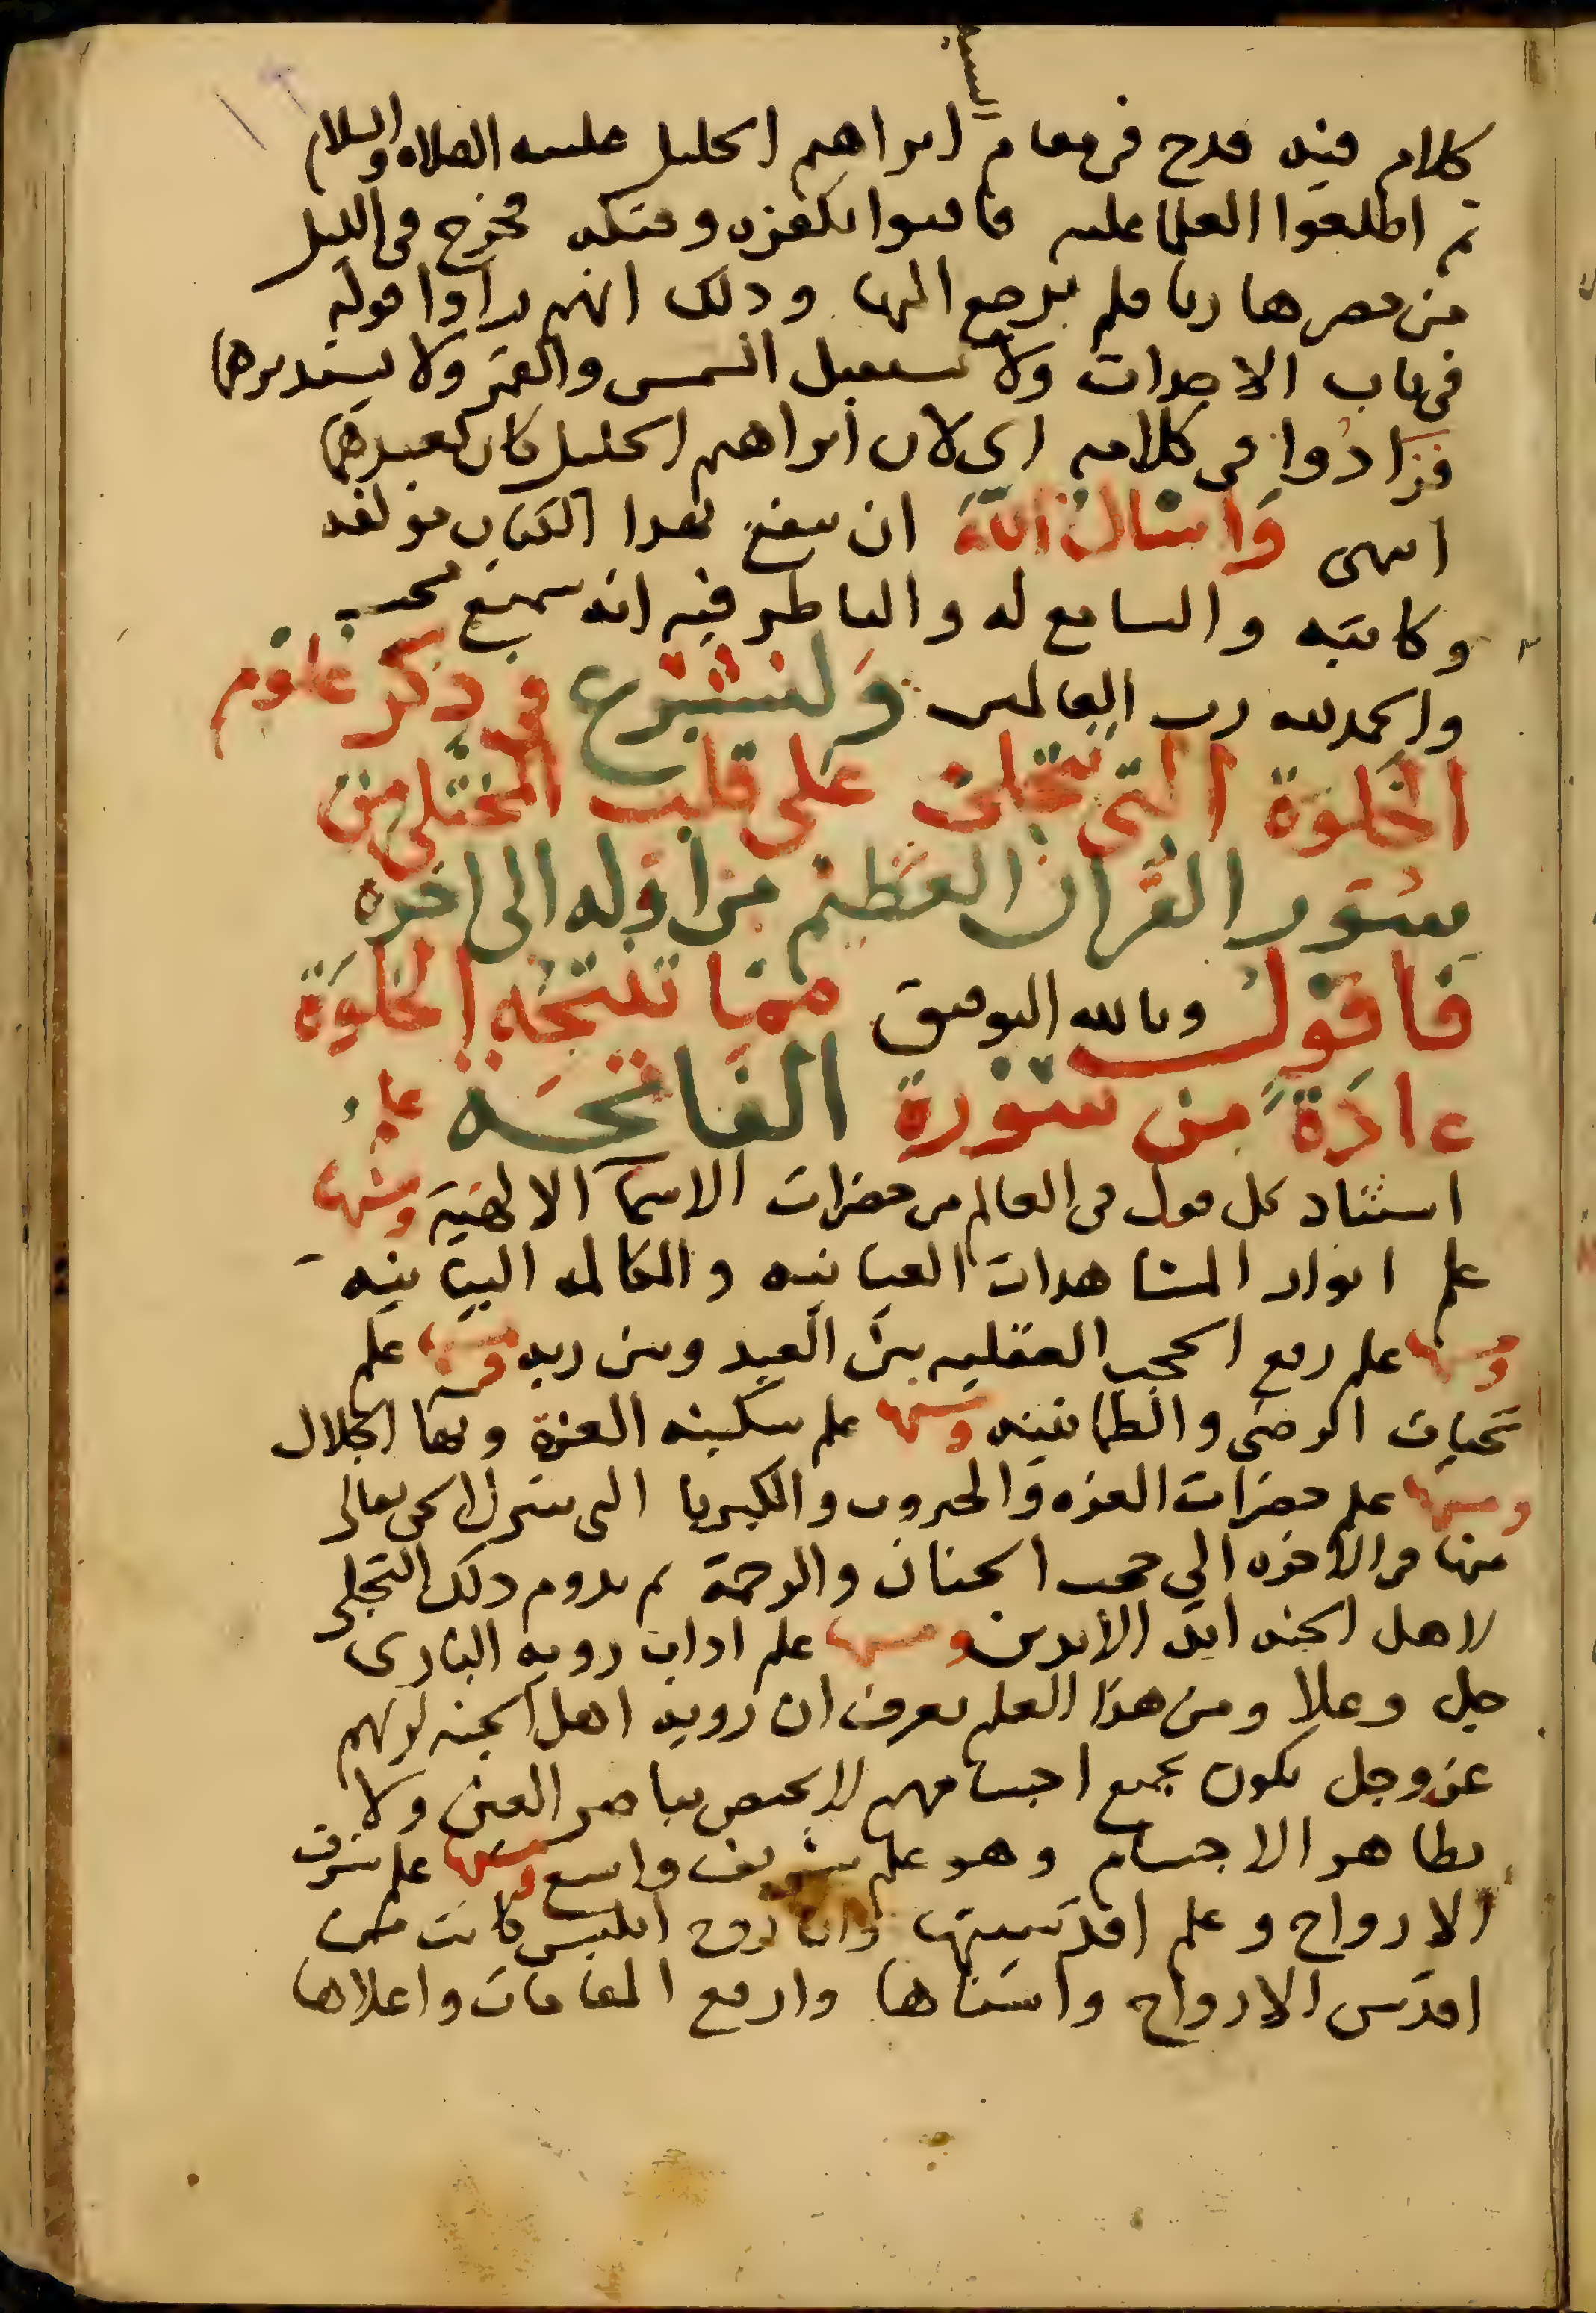 كلام فيه قدح في مقام السيد ابراهيم الخليل عليه الصلاه والسلام
ثم اطلعوا العلما عليه فافتوا بكفره وقتله فخرج في الليل
من مصر هاربا فلم يرجع اليها وذلك انهم راوا قوله
في باب الاحداث ولا يستقبل الشمس والقمر ولا يستدبرهما
فزادوا في كلامه اي لان ابراهيم الخليل كان يعبدهما
انتهى وَاسْالُ اللهَ ان ينفع بهذا الكتاب مولفه
وكاتبه والسامع له والناظر فيه انه سميع مجيب
والحمد لله رب العالمين وَلنشْرَع في ذكر علوم
الخلوة التي تتجلى على قلب المختلي من
سُوَر القرآن العَظيم من اوله الى اخره
فاقول وبالله التوفيق مما تنتجه الخلوَة
عادَةً من سُورة الفاتحَة علم
استناد كل قول في العالم من حضرات الاسمآ الالهية ومنها
علم انوار المشاهدات العيانيه والمكالمه البيانيه
ومنها علم رفع الحجب العقليه بين العبد وبين ربه ومنها علم
تحيات الرضى والطمانينه ومنها علم سكينه العزة وبها الجلال
ومنها علم حضرات العزه والجبروت والكبريا التي يتنزل الحق تعالى
منها في الاخره الى حجب الحنان والرحمة ثم يدوم ذلك التجلي
لاهل الجنه ابد الابدين ومنها علم اداب رويه الباري
جل وعلا ومن هذا العلم يعرف ان روية اهل الجنه لربهم
عز وجل تكون بجميع اجسامهم لا يختص بباصر العين ولا
بظاهر الاجسام وهو علم شريف واسع ومنها علم شرف
الارواح وعلم اقدسيتها وان روح ابليس كانت من
اقدس الارواح واسناها وارفع المقامات واعلاها